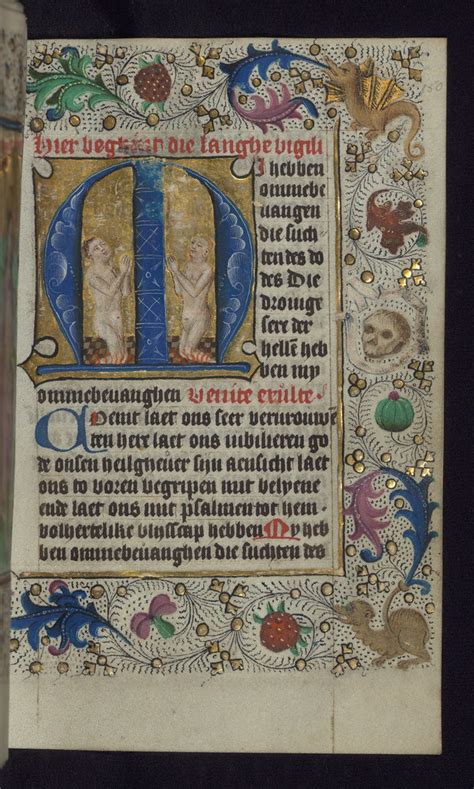 Hier beghint die langhe vigili
M I hebben
ommebe
uangen
die such
ten des do
des Die
droinge
sere der
hellen heb
ben my
ommebeuanghen Venite exulte.
Coemt laet ons seer verurouwe
ten here laet ons iubilieren go
de onsen heilgheuer sijn aensicht laet
ons to voren begripen mit belyene
ende laet ons mit psalmen tot hem
volhertelike blysscap hebben My heb
ben ommebeuanghen die suchten des
150